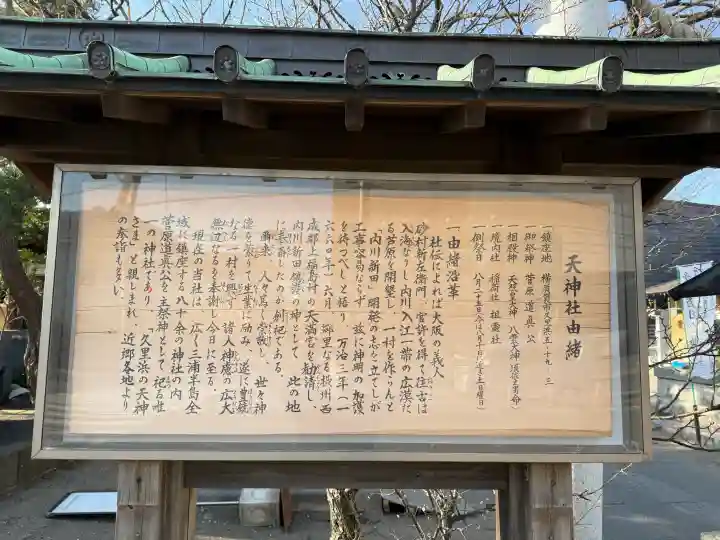 天神社由緒
一鎮座地 横須賀市久里浜五ー十九ー三
一御祭神 菅原道真公
一相殿神 天照皇大神 八雲大神（須佐之男命）
一境内社 稲荷社 祖霊社
一例祭日 八月二十五日
一由緒沿革
社伝によれば大阪の義人
砂村新左衛門、官許を得て往古は
入海なりし内川入江一帯の広漠た
る芦原を開墾し、一村を作らんと
「内川新田」開発の志を立てしが
工事容易ならず、故に神明の加護
を待つべしと悟り、万治三年（一
六六〇年）六月、郷里なる摂州西
成郡上福島村の天満宮を勧請し、
内川新田総鎮の神として、此の地
に奉斎したのが創祀である。
爾来、人々篤く崇敬し、世々神
徳を蒙りて生業に励み、遂に豊饒
なる一村を興す。諸人神慮の広大
無辺なるを奉謝し今日に至る。
現在の当社は、広く三浦半島全
域に鎮座する八十余の神社の内
菅原道真公を主祭神として祀る唯
一の神社であり、「久里浜の天神
さま」と親しまれ、近郷各地より
の参詣も多い。